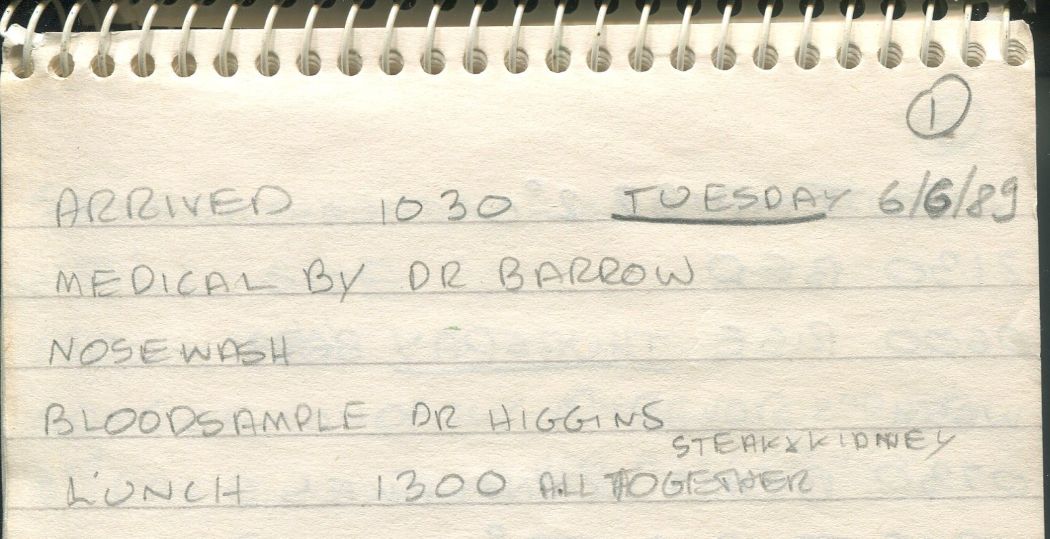 1
ARRIVED 1030 TUESDAY 6/6/89
MEDICAL BY DR BARROW
NOSEWASH
BLOODSAMPLE DR HIGGINS
STEAK & KIDNEY
LUNCH 1300 ALL TOGETHER